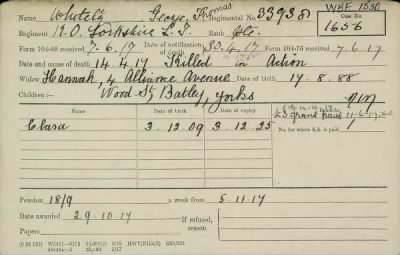 Name Whitely George Thomas Regimental No. 33938 WBF 1530
Regiment K.O. Yorkshire L.I. Rank Pte. Case No. 1656
Form 104-88 received 7.6.17 Date of notification of death 30.4.17 Form 104-76 received 7.6.17
Date and cause of death 14.4.17 Killed in Action
Widow Hannah, 4 Alliance Avenue Date of birth 17.8.88
Children:— Wood St Batley, Yorks
£5 grant paid 11.6.17
Name Date of birth Date of expiry No. for whom S.A. is paid 1
Clara 3.12.09 3.12.25
Pension 18/9 a week from 5.11.17
Date awarded 29.10.17 If refused, reason
Papers